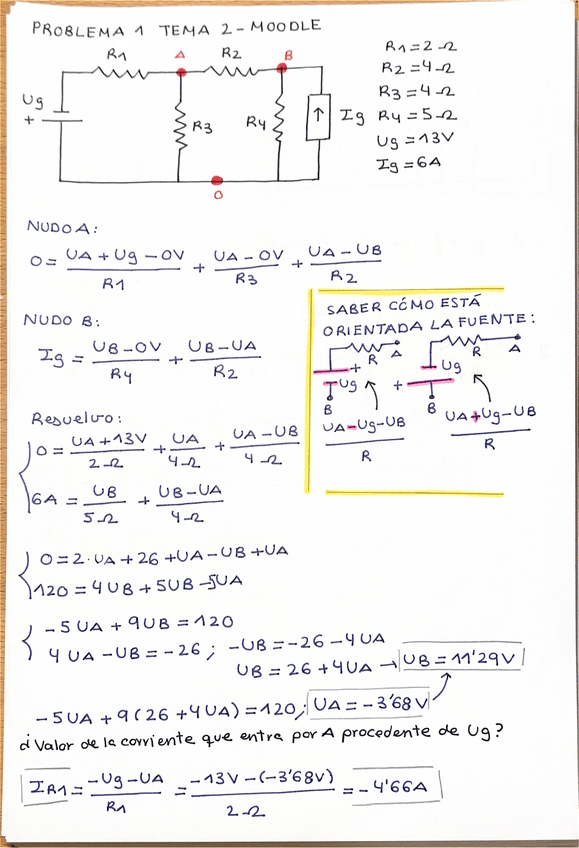 PROBLEMA 1 TEMA 2 - MOODLE
R1 A R2 B
R1 = 2 Ω
R2 = 4 Ω
R3 = 4 Ω
R4 = 5 Ω
Ug = 13V
Ig = 6A
Ug
+
R3 R4 ↑ Ig
O
NUDO A:
0 = (UA + Ug - 0V)/R1 + (UA - 0V)/R3 + (UA - UB)/R2
NUDO B:
Ig = (UB - 0V)/R4 + (UB - UA)/R2
SABER CÓMO ESTÁ
ORIENTADA LA FUENTE:
R A
+
Ug
B
(UA - Ug - UB)/R
R A
Ug
+
B
(UA + Ug - UB)/R
Resuelvo:
0 = (UA + 13V)/2Ω + UA/4Ω + (UA - UB)/4Ω
6A = UB/5Ω + (UB - UA)/4Ω
0 = 2·UA + 26 + UA - UB + UA
120 = 4UB + 5UB - 5UA
-5UA + 9UB = 120
4UA - UB = -26 ; -UB = -26 - 4UA
UB = 26 + 4UA → UB = 11'29V
-5UA + 9(26 + 4UA) = 120; UA = -3'68V
¿Valor de la corriente que entra por A procedente de Ug?
IR1 = (-Ug - UA)/R1 = (-13V - (-3'68V))/2Ω = -4'66A